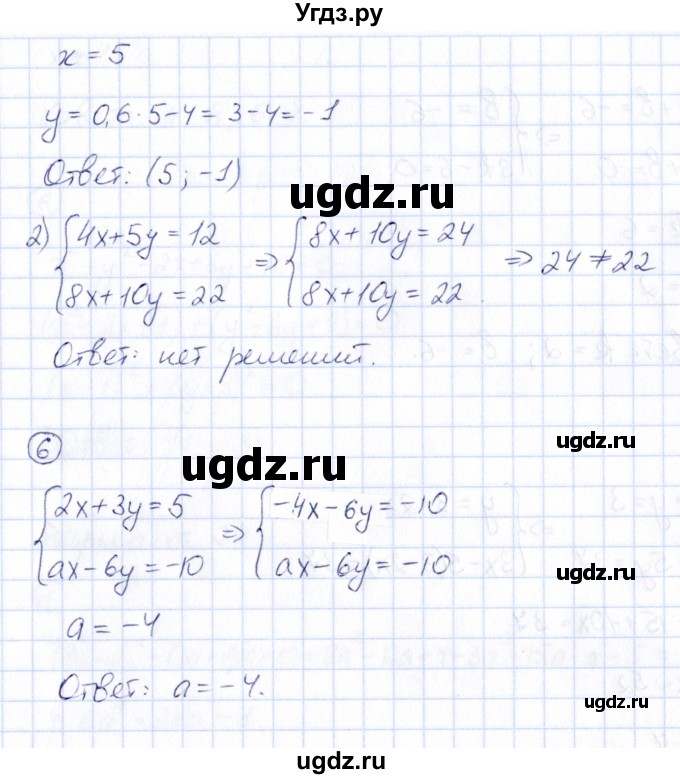 Угдз.ру
x = 5
y = 0,6 · 5 - 4 = 3 - 4 = -1
Ответ: (5 ; -1)
ugdz.ru
2) { 4x + 5y = 12 8x + 10y = 22 ⇒ { 8x + 10y = 24 8x + 10y = 22 ⇒ 24 ≠ 22
Ответ: нет решений.
ugdz.ru
6
ugdz.ru
{ 2x + 3y = 5 ax - 6y = -10 ⇒ { -4x - 6y = -10 ax - 6y = -10
ugdz.ru
a = -4
Ответ: a = -4.
ugdz.ru
ugdz.ru